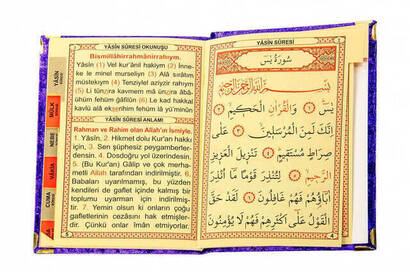 YÂSİN SÛRESİ OKUNUŞU
Bismillâhirrahmânirrahıym.
Yâsîn (1) Vel kur'ânil hakiym (2) İnne-
ke le minel murseliyn (3) Alâ sırâtım
müstekıym (4) Tenziylel aziyzir rahıym
(5) Li tünzira kavmem mâ ünzira âbâ-
ühüm fehüm ğâfilûn (6) Le kad hakkal
kavlü alâ ekserihim fehüm lâ yü'minûn
YÂSİN SÛRESİ ANLAMI
Rahman ve Rahim olan Allah'ın İsmiyle.
1. Yâsîn. 2. Hikmet dolu Kur'an hakkı
için, 3. Sen şüphesiz peygamberler-
densin. 4. Dosdoğru yol üzerindesin.
5. (Bu Kur'an) Gâlip ve çok merha-
metli Allah tarafından indirilmiştir. 6.
Babaları uyarılmamış, bu yüzden
kendileri de gaflet içinde kalmış bir
toplumu uyarman için indirilmiş-
tir. 7. Yemin olsun ki onların çoğu
gafletlerinin cezasını hak etmişler-
dir. Çünkü onlar îman etmiyorlar.
4
YÂSİN
MÜLK
NEBE
VÂKIA
CUMA
YÂSİN SÛRESİ
سُورَةُ يٰسٓ
بِسْمِ اللّٰهِ الرَّحْمٰنِ الرَّحِيمِ
يٰسٓ ﴿١﴾ وَالْقُرْاٰنِ الْحَكِيمِ ﴿٢﴾
اِنَّكَ لَمِنَ الْمُرْسَلِينَ ﴿٣﴾ عَلٰى
صِرَاطٍ مُسْتَقِيمٍ ﴿٤﴾ تَنْزِيلَ الْعَزِيزِ
الرَّحِيمِ ﴿٥﴾ لِتُنْذِرَ قَوْمًا مَٓا اُنْذِرَ
اٰبَٓاؤُهُمْ فَهُمْ غَافِلُونَ ﴿٦﴾ لَقَدْ حَقَّ
الْقَوْلُ عَلٰٓى اَكْثَرِهِمْ فَهُمْ لَا يُؤْمِنُونَ
5